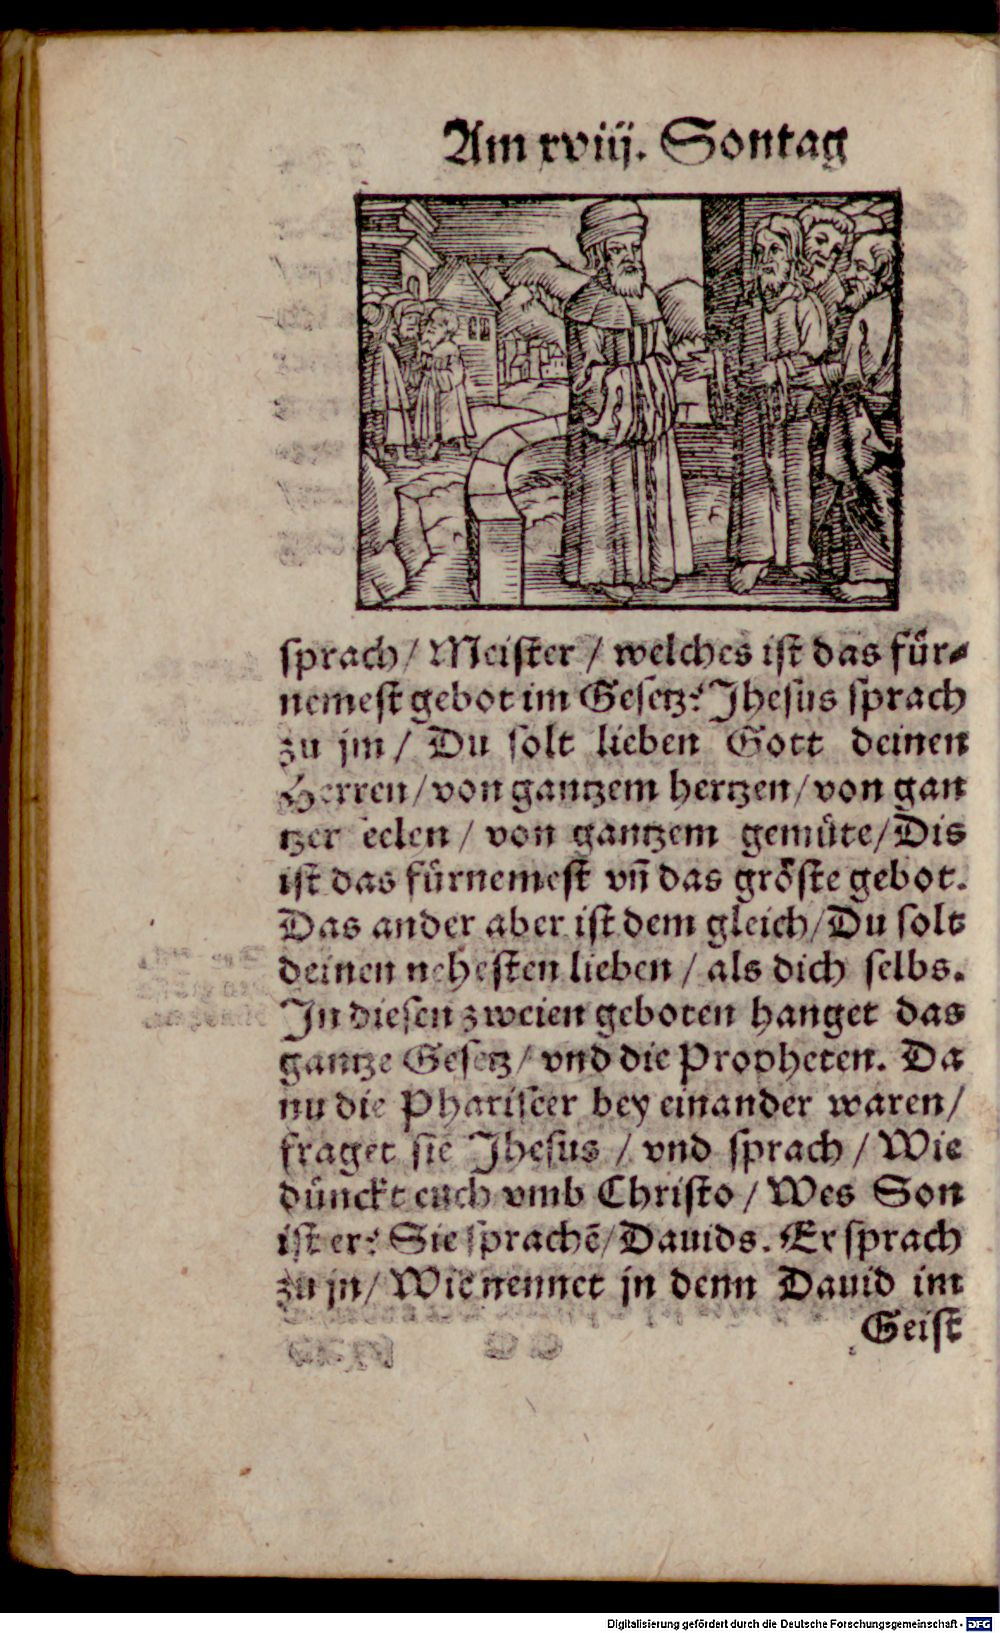 Am xviij. Sontag
sprach/ Meister / welches ist das für-
nemest gebot im Gesetz? Jhesus sprach
zu jm/ Du solt lieben Gott deinen
Herren/ von gantzem hertzen/ von gan
tzer seelen/ von gantzem gemüte/ Dis
ist das fürnemest vñ das gröste gebot.
Das ander aber ist dem gleich/ Du solt
deinen nehesten lieben / als dich selbs.
In diesen zweien geboten hanget das
gantze Gesetz/ vnd die Propheten. Da
nu die Phariseer bey einander waren/
fraget sie Jhesus / vnd sprach / Wie
dünckt euch vmb Christo / Wes Son
ist er? Sie sprachē/ Dauids. Er sprach
zu jn/ Wie nennet jn denn Dauid im
Geist
Digitalisierung gefördert durch die Deutsche Forschungsgemeinschaft - DFG